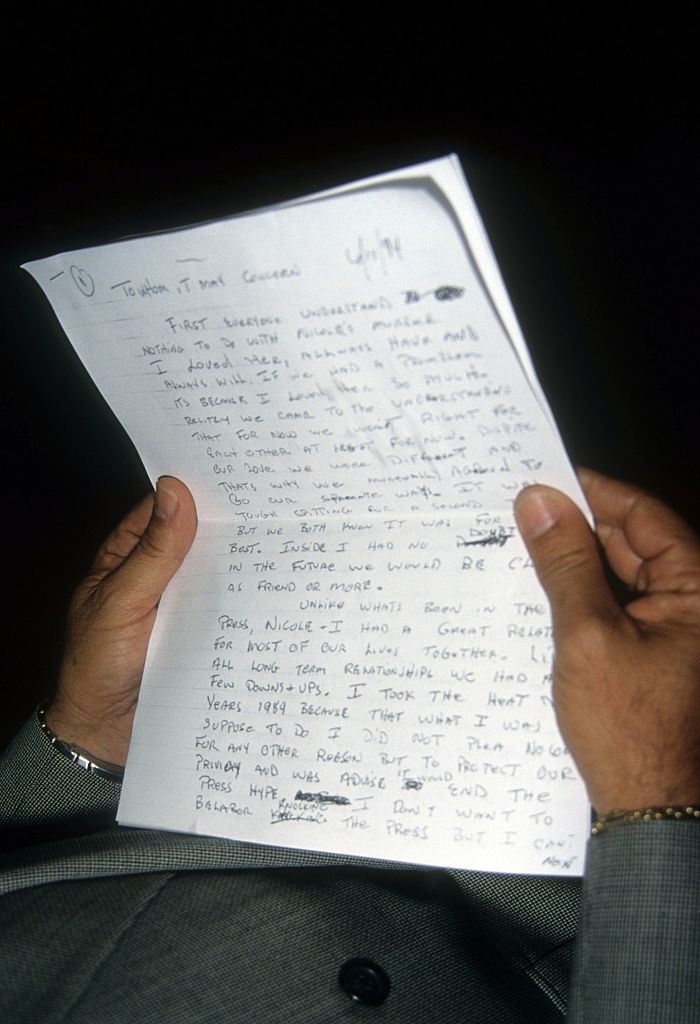 ①
TO WHOM IT MAY CONCERN
FIRST EVERYONE UNDERSTAND
NOTHING TO DO WITH NICOLE'S MURDER
I LOVED HER, ALLWAYS HAVE AND
ALWAYS WILL. IF WE HAD A PROMBLEM
ITS BECAUSE I LOVED HER SO MUCH.
WE CAME TO THE UNDERSTANDING
THAT FOR NOW WE RIGHT FOR
EACH OTHER AT LEAST FOR NOW. DISPITE
OUR LOVE WE WERE DIFFERENT AND
THATS WHY WE AGREED TO
GO OUR WAYS. IT WAS
TOUGH SPITTING FOR A SECOND
BUT WE BOTH KNEW IT WAS FOR
BEST. INSIDE I HAD NO DOUBT
IN THE FUTURE WE WOULD BE CL
AS FRIEND OR MORE.
UNLIKE WHATS BEEN IN THE
PRESS, NICOLE + I HAD A GREAT RELAT
FOR MOST OF OUR LIVES TOGETHER. LI
ALL LONG TERM RELATIONSHIPS WE HAD A
FEW DOWNS + UPS. I TOOK THE HEAT N
YEARS 1989 BECAUSE THAT WHAT I WAS
SUPPOSE TO DO I DID NOT PLEA NO
FOR ANY OTHER REASON BUT TO PROTECT OUR
PRIVICY AND WAS ADVISE IT WOULD END THE
PRESS HYPE. I DON'T WANT TO
BELABOR KNOCKING THE PRESS BUT I CAN'T